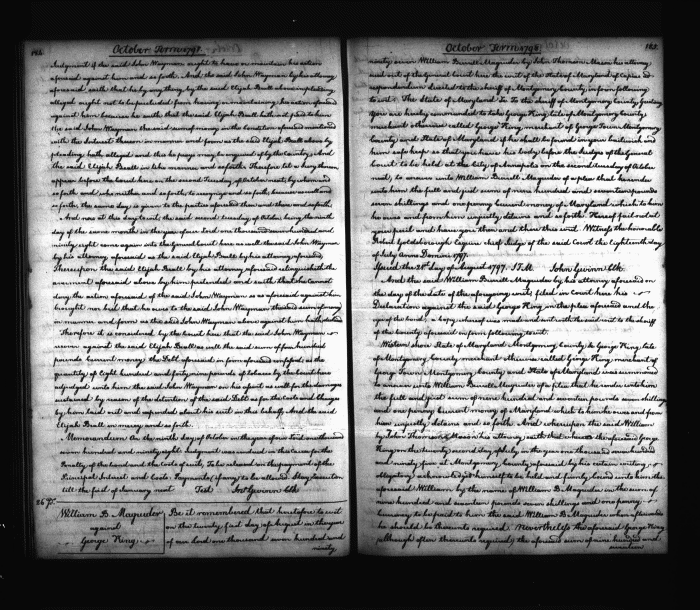 October Term 1798
Judgment if the said John Wayman ought to have or maintain his action
aforesaid against him and so forth. And the said John Wayman by his attorney
aforesaid saith that he by any thing by the said Elijah Beall above in pleading
alleged ought not to be precluded from having or maintaining his action aforesaid
against him because he saith that the said Elijah Beall hath not paid to him
the said John Wayman the said sum of money in the Condition aforesaid mentioned
with the Interest thereon in manner and form as the said Elijah Beall above by
pleading hath alleged and this he prays may be enquired of by the Country, And
the said Elijah Beall in like manner and so forth. Therefore let a Jury thereon
appear before the Court here on the second Tuesday of October next, by whom and
so forth and who neither and so forth to recognize and so forth because as well and
so forth, the same day is given to the parties aforesaid then and there and so forth.
And now at this day to wit the said second Tuesday of October being the ninth
day of the same month in the year of our Lord one thousand seven hundred and
ninety eight come again into the General Court here as well the said John Wayman
by his attorney aforesaid as the said Elijah Beall by his attorney aforesaid
Thereupon the said Elijah Beall by his attorney aforesaid relinquisheth the
averment aforesaid above by him pretended and saith that he cannot
deny the action aforesaid of the said John Wayman as aforesaid against him
brought nor but that he owes to the said John Wayman the said sum of money
in manner and form as the said John Wayman above against him hath
Therefore it is considered by the Court here that the said John Wayman
recover against the said Elijah Beall as well the said sum of four hundred
pounds Current money the Debt aforesaid in form aforesaid as the
quantity of Eight hundred and forty nine pounds of tobacco by the Court here
adjudged unto him the said John Wayman on his assent as well for the damages
sustained by reason of the detention of the said Debt as for the Costs and Charges
by him laid out and expended about his suit in this behalf, And the said
Elijah Beall in mercy and so forth.
Memorandum On the ninth day of October in the year of our Lord one thousand
seven hundred and ninety eight Judgment was rendered in this Case for the
Penalty of the bond and the Costs of suit, To be released on the payment of the
Principal Interest and Costs. Payments (if any) to be allowed Stay Execution
till the first of January next Test Jno Gwinn Clk
William B. Magruder
against
George King
Be it remembered that heretofore to wit
on the twenty first day of August in the year
of our Lord one thousand seven hundred and
ninety
October Term 1798
163.
ninety seven William Burrell Magruder by John Thomson Mason his attorney
sued out of the General Court here the writ of the State of Maryland of Capias ad
respondendum directed to the sheriff of Montgomery County, in form following
to wit. The State of Maryland To the sheriff of Montgomery County, Greeting
You are hereby commanded to take George King late of Montgomery County
merchant otherwise called George King, merchant of George Town Montgomery
County and State of Maryland if he shall be found in your bailiwick and
him safe keep so that you have his body before the Judges of the General
Court to be held at the City of Annapolis on the second Tuesday of October
next, to answer unto William Burrell Magruder of a plea that he render
unto him the full and just sum of nine hundred and seventeen pounds
seven shillings and one penny Current money of Maryland which to him
he owes and from him unjustly detains and so forth. Hereof fail not at
your peril and have you then and there this writ. Witness the honorable
Robert Goldsborough Esquire chief Judge of the said Court the eighteenth day
of July Anno Domini 1797.
Issued the 21st day of August 1797. J T M. John Gwinn Clk.
And the said William Burrell Magruder by his attorney aforesaid on
the day of the date of the aforegoing writ filed in Court here his
Declaration against the said George King in the plea aforesaid and the
of the bond, a copy whereof was sent with the said writ to the sheriff
of the County aforesaid in form following to wit.
Western shore State of Maryland Montgomery County sc George King late
of Montgomery County merchant otherwise called George King merchant of
George Town Montgomery County and State of Maryland was summoned
to answer unto William Burrell Magruder of a plea that he render unto him
the full and just sum of nine hundred and seventeen pounds seven shillings
and one penny Current money of Maryland which to him he owes and from
him unjustly detains and so forth. And whereupon the said William
by John Thomson Mason his attorney saith that whereas the aforesaid George
King on the twenty second day of July in the year one thousand seven hundred
and ninety five at Montgomery County aforesaid by his certain writing
obligatory acknowledged himself to be held and firmly bound unto him the
aforesaid William by the name of William B. Magruder in the sum of
nine hundred and seventeen pounds seven shillings and one penny
Currency to be paid to him the said William B. Magruder when afterwards
he should be thereunto required. Nevertheless the aforesaid George King
although often thereunto required, the aforesaid sum of nine hundred and
seventeen